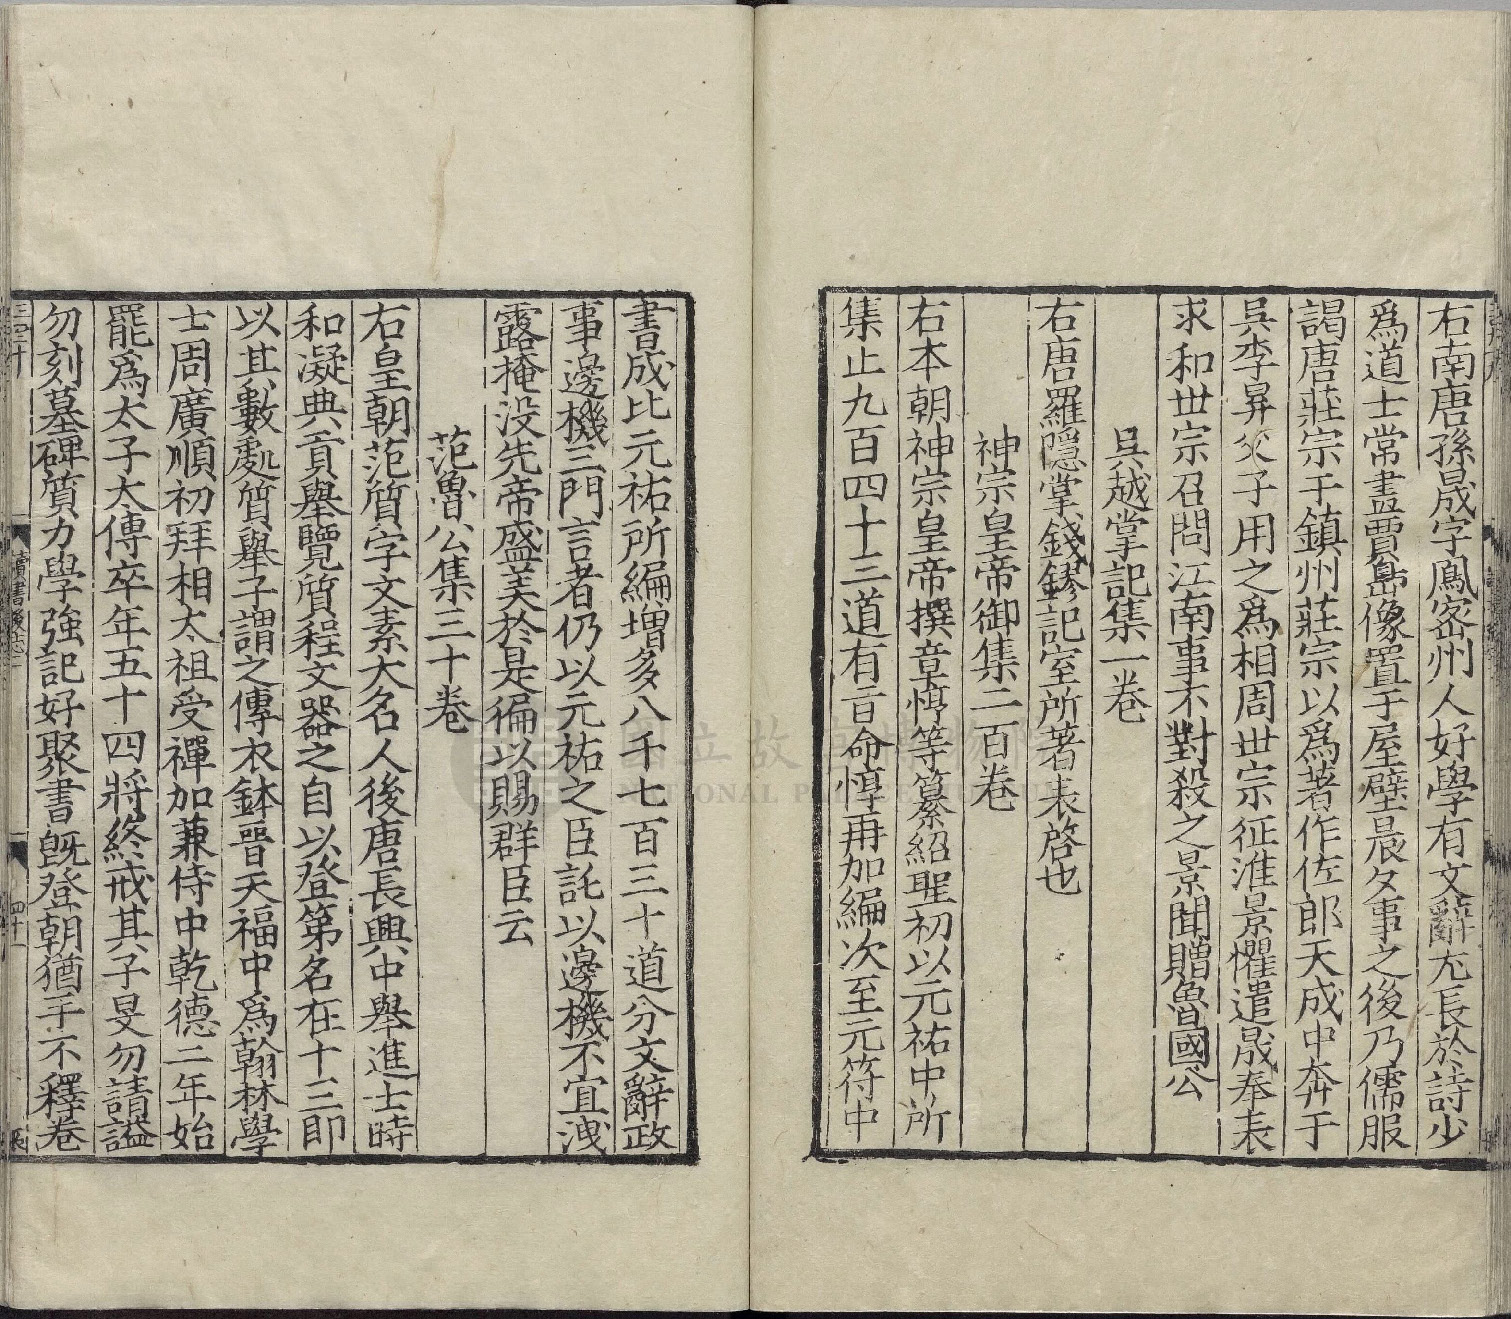 右南唐孫晟字鳳密州人好學有文辭尤長於詩少
爲道士常畫賈島像置于屋壁晨夕事之後乃儒服
謁唐莊宗于鎮州莊宗以爲著作佐郎天成中奔于
吳李昪父子用之爲相周世宗征淮景懼遣晟奉表
求和世宗召問江南事不對殺之景聞贈魯國公
吳越掌記集一卷
右唐羅隱掌錢鏐記室所著表啓也
神宗皇帝御集二百卷
右本朝神宗皇帝撰章惇等纂紹聖初以元祐中所
集止九百四十三道有旨命惇再加編次至元符中
書成比元祐所編增多八千七百三十道分文辭政
事邊機三門言者仍以元祐之臣託以邊機不宜洩
露掩没先帝盛美於是徧以賜群臣云
范魯公集三十卷
右皇朝范質字文素大名人後唐長興中舉進士時
和凝典貢舉覽質程文器之自以登第名在十三即
以其數處質舉子謂之傳衣鉢晉天福中爲翰林學
士周廣順初拜相太祖受禪加兼侍中乾德二年始
罷爲太子太傅卒年五十四將終戒其子旻勿請謚
勿刻墓碑質力學強記好聚書旣登朝猶手不釋卷
讀書後志二
四十一
國立故宮博物院
NATIONAL PALACE MUSEUM